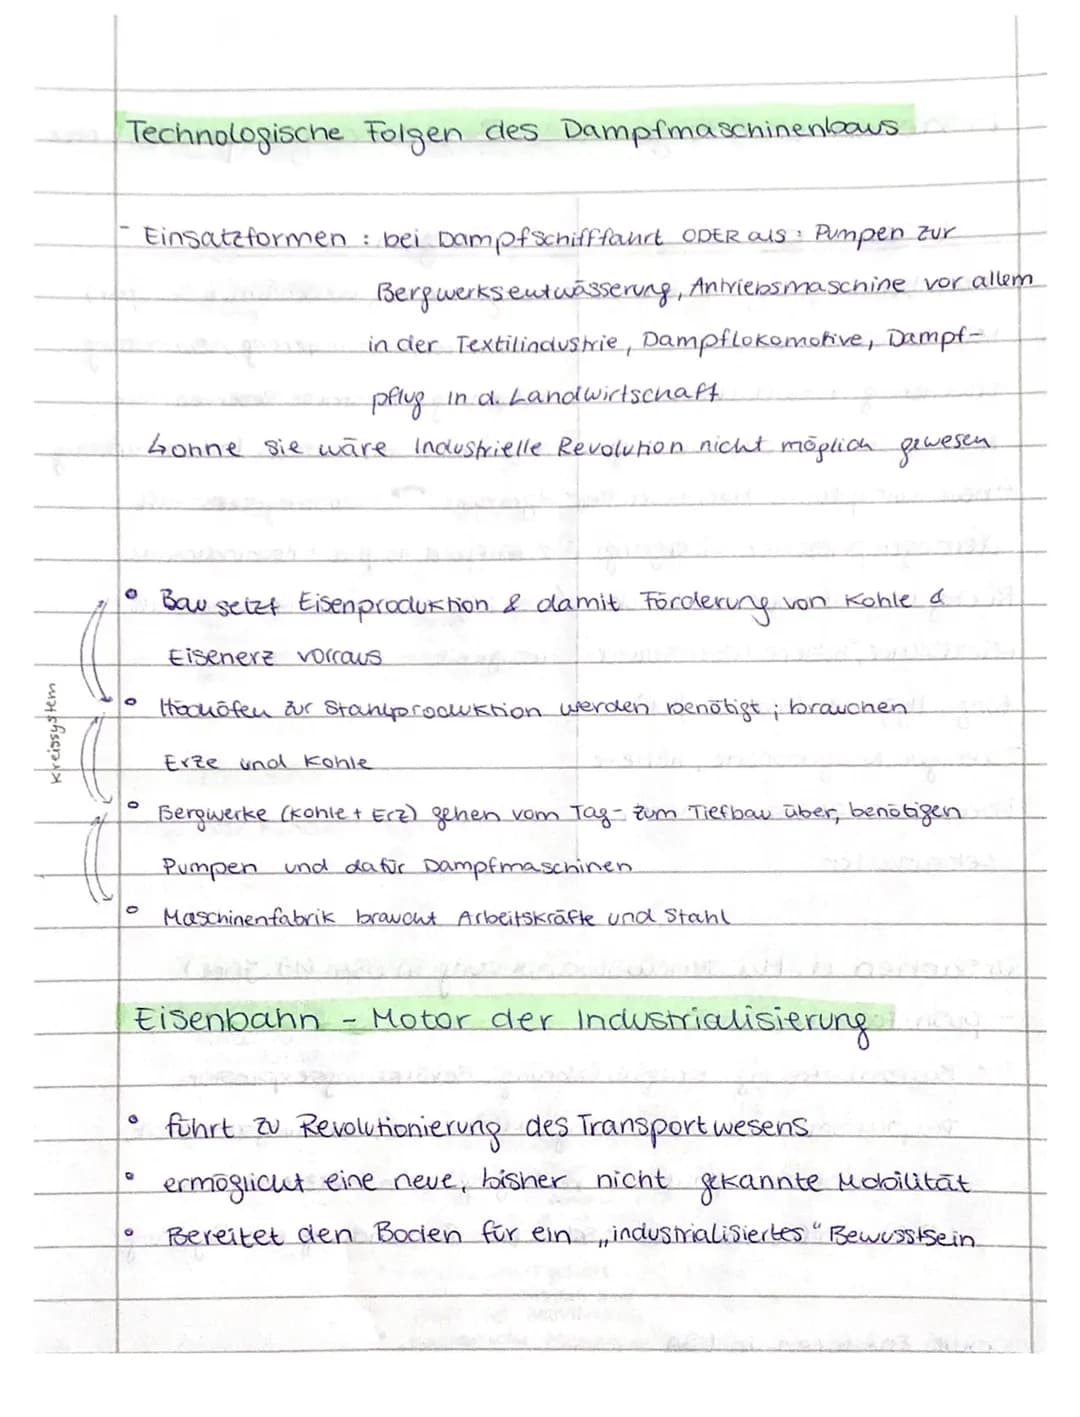 Technologische Folgen des Dampfmaschinenbaus
- Einsatzformen : bei Dampfschifffahrt ODER als : Pumpen zur
Bergwerksentwässerung, Antriebsmaschine vor allem
in der Textilindustrie, Dampflokomotive, Dampf-
pflug in d. Landwirtschaft
↳ ohne sie wäre Industrielle Revolution nicht möglich gewesen
• Bau setzt Eisenproduktion & damit Förderung von Kohle &
Eisenerz vorraus
• Hochöfen zur Stahlproduktion werden benötigt ; brauchen
Erze und Kohle
• Bergwerke (Kohle + Erz) gehen vom Tag- zum Tiefbau über, benötigen
Pumpen und dafür Dampfmaschinen
• Maschinenfabrik braucht Arbeitskräfte und Stahl
Kreissystem
Eisenbahn - Motor der Industrialisierung
• führt zu Revolutionierung des Transportwesens
• ermöglicht eine neue, bisher nicht gekannte Mobilität
• Bereitet den Boden für ein „industrialisiertes“ Bewusstsein